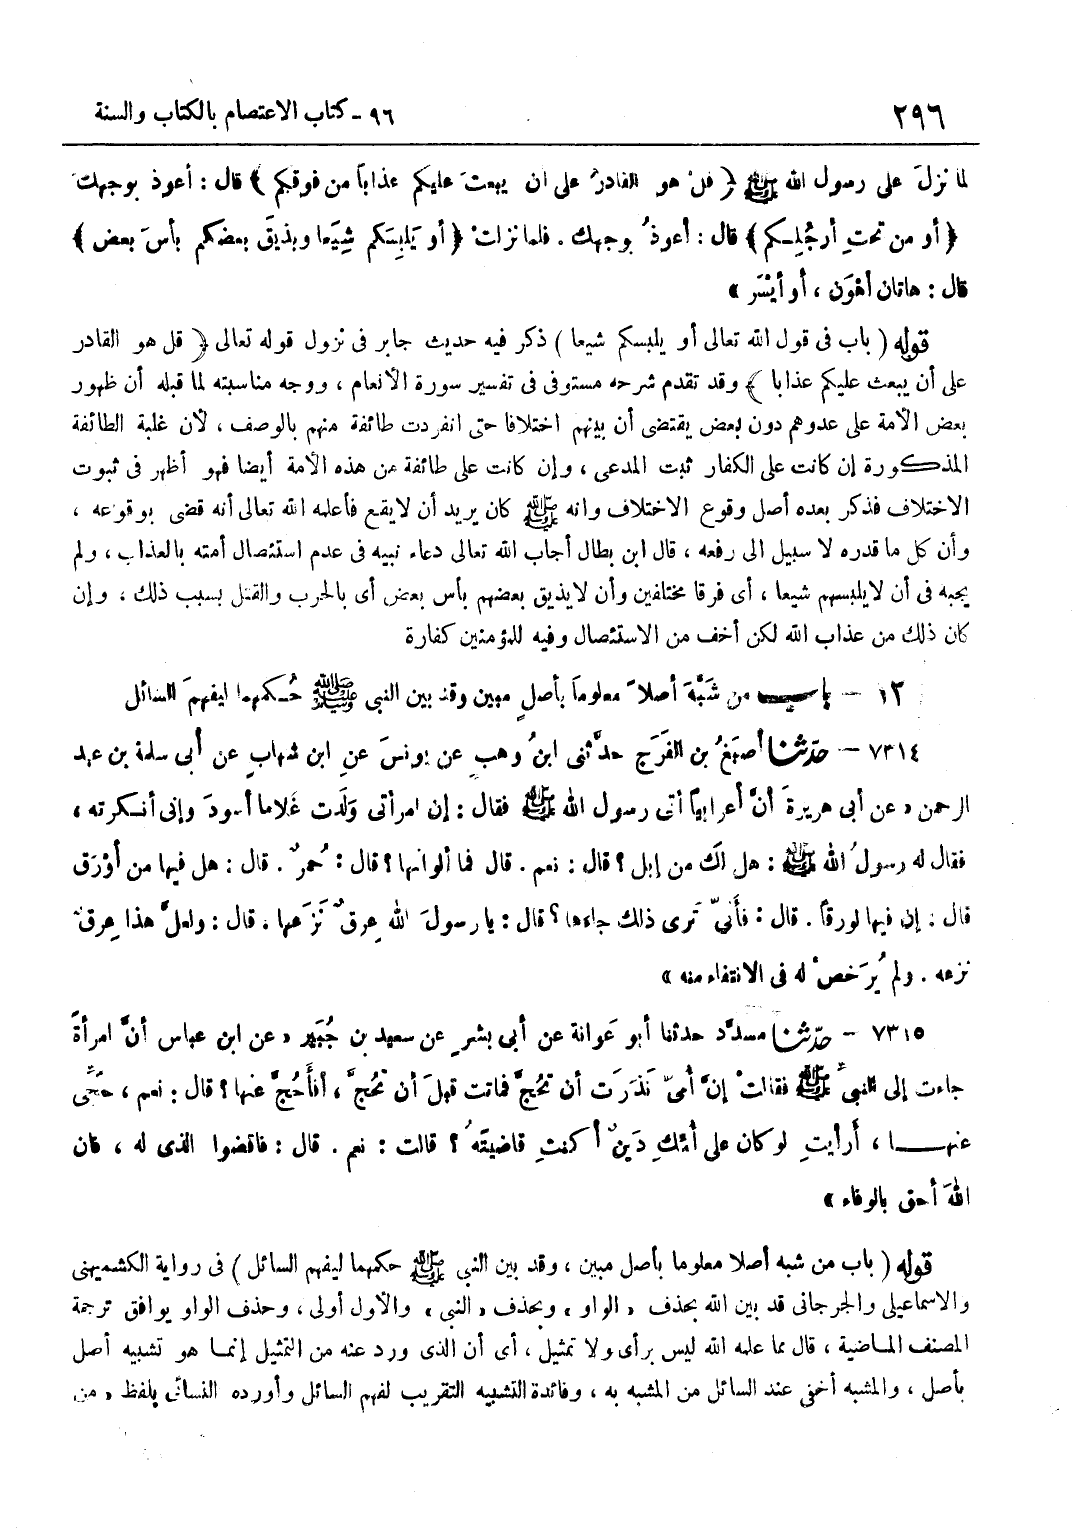 ٢٩٦ ٩٦ - كتاب الاعتصام بالكتاب والسنة
لما نزلَ على رسول الله ﷺ ﴿ قل هو القادرُ على أن يبعثَ عليكم عذاباً من فوقكم ﴾ قال : أعوذ بوجهكَ
﴿ أو من تحتِ أرجُلِـكم ﴾ قال : أعوذُ بوجهك . فلما نزلت ﴿ أو يَلبِسَكم شِيَعا ويذيقَ بعضكم بأسَ بعض ﴾
قال : هاتان أهْوَن ، أو أيْسَر »
قوله ( باب فى قول الله تعالى أو يلبسكم شيعا ) ذكر فيه حديث جابر فى نزول قوله تعالى ﴿ قل هو القادر
على أن يبعث عليكم عذابا ﴾ وقد تقدم شرحه مستوفى فى تفسير سورة الأنعام ، ووجه مناسبته لما قبله أن ظهور
بعض الأمة على عدوهم دون بعض يقتضى أن بينهم اختلافا حتى انفردت طائفة منهم بالوصف ، لأن غلبة الطائفة
المذكورة إن كانت على الكفار ثبت المدعى ، وإن كانت على طائفة من هذه الأمة أيضا فهو أظهر فى ثبوت
الاختلاف فذكر بعده أصل وقوع الاختلاف وانه ﷺ كان يريد أن لايقع فأعلمه الله تعالى أنه قضى بوقوعه ،
وأن كل ما قدره لا سبيل الى رفعه ، قال ابن بطال أجاب الله تعالى دعاء نبيه فى عدم استئصال أمته بالعذاب ، ولم
يجبه فى أن لايلبسهم شيعا ، أى فرقا مختلفين وأن لايذيق بعضهم بأس بعض أى بالحرب والقتل بسبب ذلك ، وإن
كان ذلك من عذاب الله لكن أخف من الاستئصال وفيه للمؤمنين كفارة
١٢ - باب من شَبَّهَ أصلاً معلوماً بأصلٍ مبين وقد بين النبي ﷺ حُـكمهما ليفهمَ السائل
٧٣١٤ - حدّثنا أصبَغُ بن الفَرَج حدَّثنى ابنُ وهب عن يونسَ عنِ ابن شهاب عن أبى سلمة بن عبد
الرحمن « عن أبى هريرةَ أنَّ أعرابيا أتى رسول الله ﷺ فقال : إن امرأتى وَلَدت غُلاما أسودَ وإنى أنـكرته ،
فقال له رسولُ الله ﷺ : هل لك من إبل ؟ قال : نعم . قال فما ألوانها ؟ قال : حُمرٌ . قال : هل فيها من أوْرَق
قال : إن فيها لوُرقاً . قال : فأَنىّ تُرى ذلك جاءها ؟ قال : يا رسولَ الله عِرقٌ نَزَعها . قال : ولعلَّ هذا عِرقٌ
نزعه . ولم يُرَخصْ له فى الانتفاء منه »
٧٣١٥ - حدّثنا مسدَّد حدثنا أبو عَوانة عن أبى بشرٍ عن سعيد بن جُبَير « عن ابن عباس أنَّ امرأةً
جاءت إلى النبىِّ ﷺ فقالتْ إنَّ أمىّ نَذَرَت أن تحُجَّ فماتت قبلَ أن تحُجَّ ، أفأحُجَّ عنها ؟ قال : نعم ، حُجِّى
عنهـــا ، أرأيتِ لو كان على أمِّكِ دَينٌ أكنتِ قاضيتَه ؟ قالت : نعم . قال : فاقضوا الذى له ، فان
اللهَ أحق بالوفاء »
قوله ( باب من شبه أصلا معلوما بأصل مبين ، وقد بين النبى ﷺ حكمهما ليفهم السائل ) فى رواية الكشميهنى
والاسماعيلى والجرجانى قد بين الله بحذف « الواو » وبحذف « النبى » والأول أولى ، وحذف الواو يوافق ترجمة
المصنف الماضية ، قال مما علمه الله ليس برأى ولا تمثيل ، أى أن الذى ورد عنه من التمثيل إنمـا هو تشبيه أصل
بأصل ، والمشبه أخفى عند السائل من المشبه به ، وفائدة التشبيه التقريب لفهم السائل وأورده النسائى بلفظ « من